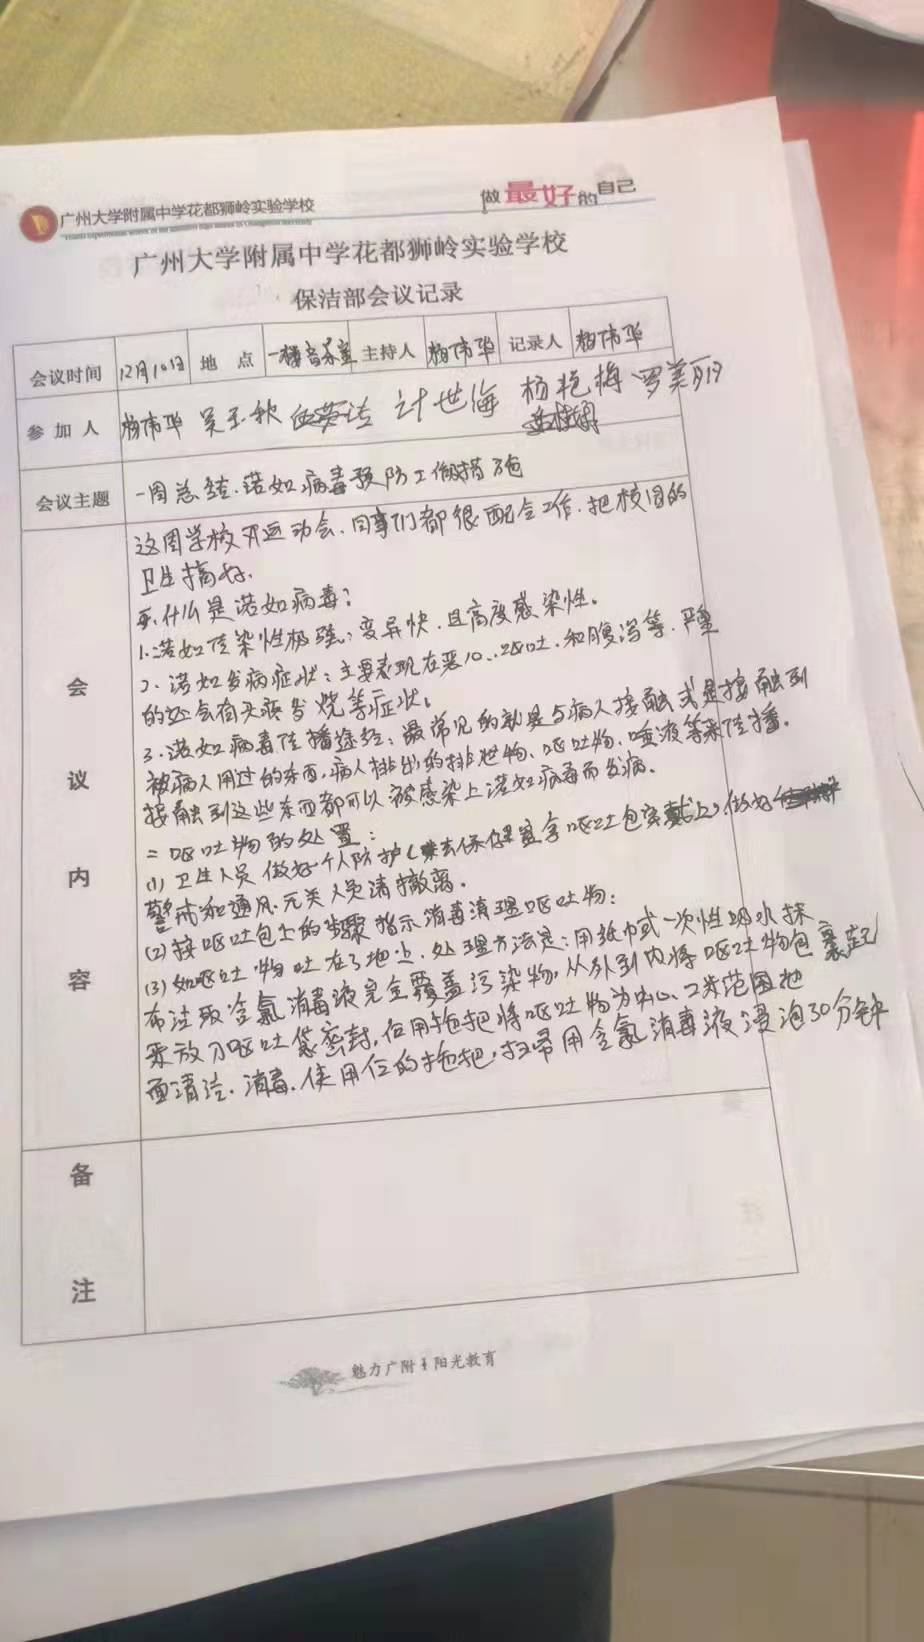 广州大学附属中学花都狮岭实验学校
做最好的自己
广州大学附属中学花都狮岭实验学校
保洁部会议记录
会议时间 12月10日 地点 一楼音乐室 主持人 杨伟华 记录人 杨伟华
参加人 杨伟华 吴玉秋 计世海 杨艳梅 罗美丽
会议主题 一周总结.诺如病毒预防工作措施
会议内容
这周学校开运动会.同事们都很配合工作.把校园的
卫生搞好.
一.什么是诺如病毒?
1.诺如传染性极强,变异快.且高度感染性。
2.诺如发病症状:主要表现在恶心、呕吐.和腹泻等.严重
的还会有头疼发烧等症状。
3.诺如病毒传播途径:最常见的就是与病人接触或是接触到
被病人用过的东西,病人排出的排泄物、呕吐物、唾液等来传播。
接触到这些东西都可以被感染上诺如病毒而发病。
二呕吐物的处置:
(1)卫生人员做好个人防护(来去保健室拿呕吐包穿戴上).做好
警示和通风.无关人员请撤离.
(2)按呕吐包上的步骤指示消毒清理呕吐物:
(3)如呕吐物吐在了地上.处理方法是:用纸巾或一次性吸水抹
布沾取含氯消毒液完全覆盖污染物,从外到内将呕吐物包裹起
来放刀呕吐袋密封,在用拖把将呕吐物为中心、2米范围地
面清洁.消毒.使用仨的拖把,扫帚用含氯消毒液浸泡30分钟
备注
魅力广附 阳光教育